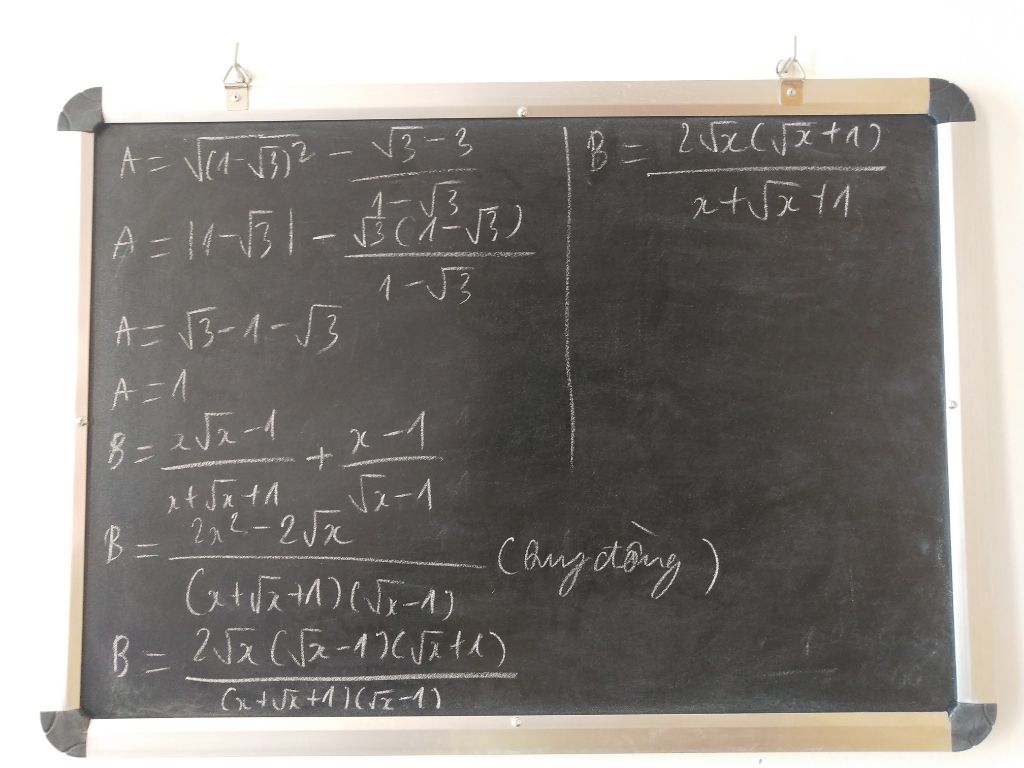 A = √(1-√3)² - (√3-3)/(1-√3)
A = |1-√3| - √3(1-√3)/(1-√3)
A = √3-1-√3
A = 1
B = (x√x-1)/(x+√x+1) + (x-1)/(√x-1)
B = (2x²-2√x)/((x+√x+1)(√x-1)) (Quy đồng)
B = 2√x(√x-1)(√x+1)/((x+√x+1)(√x-1))
B = 2√x(√x+1)/(x+√x+1)